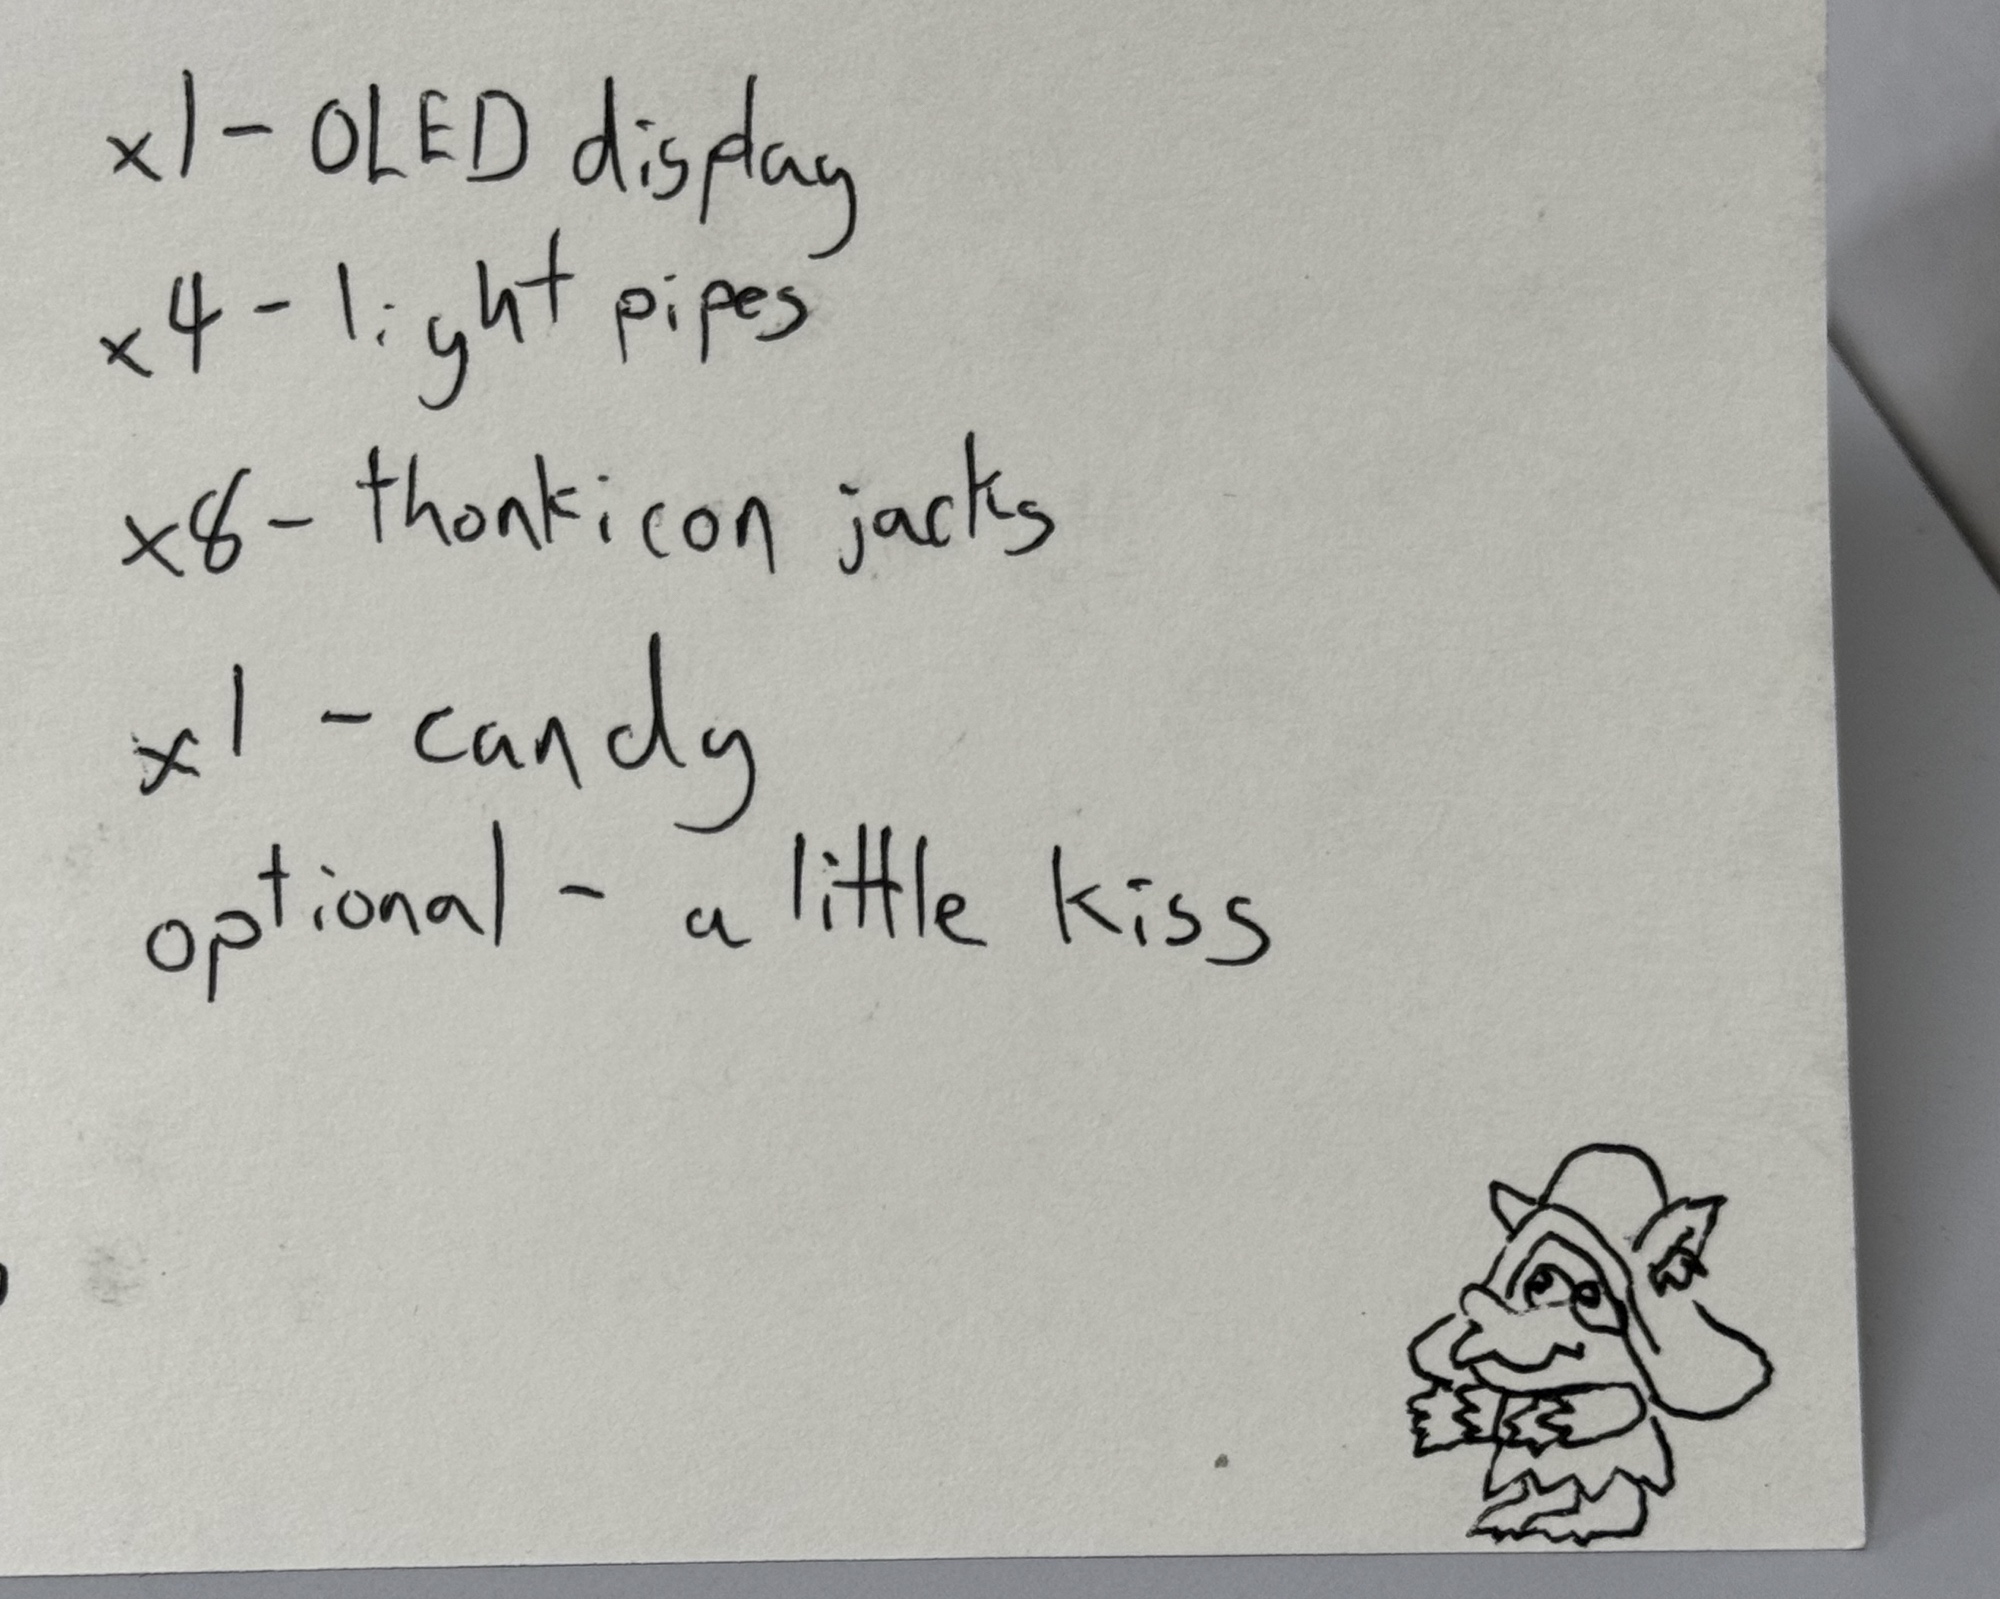 x1 - OLED display
x4 - light pipes
x8 - thonkicon jacks
x1 - candy
optional - a little kiss